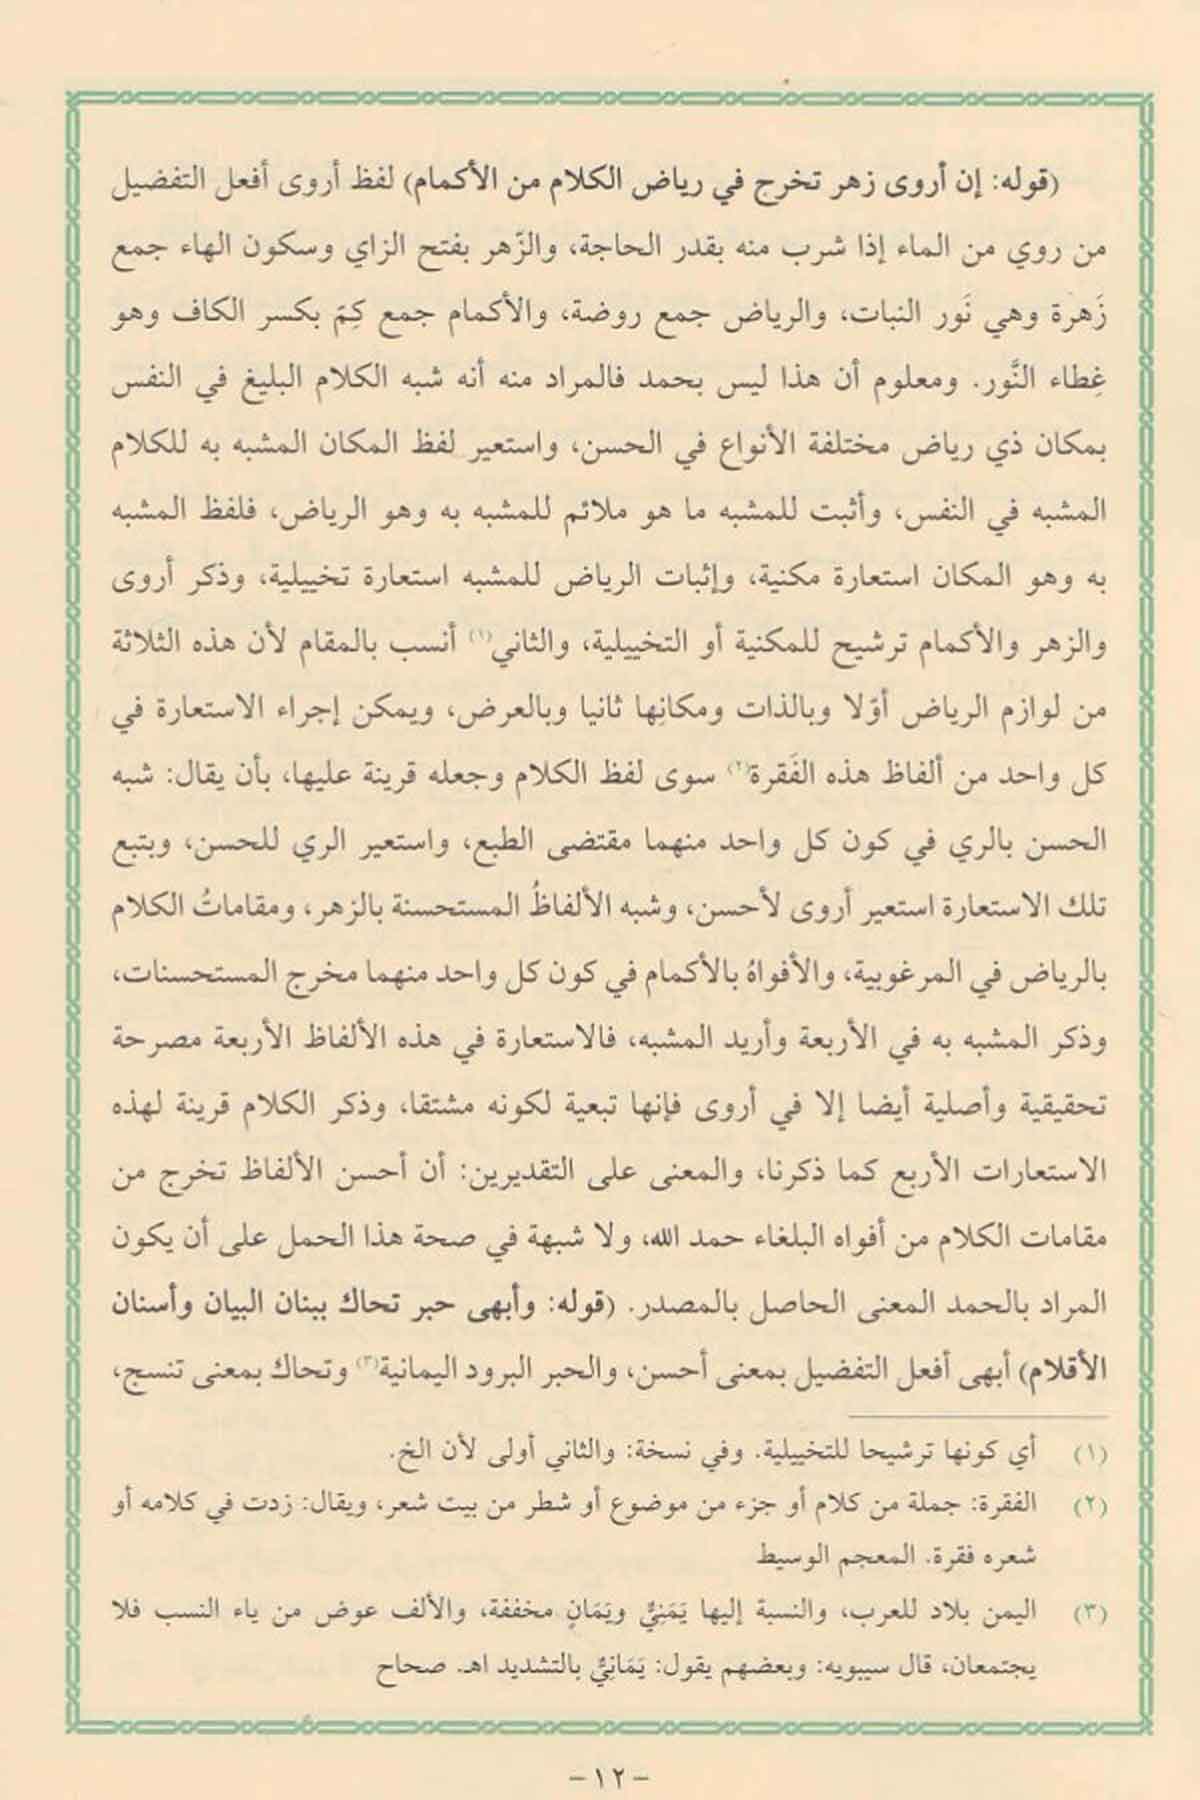 (قوله: إن أروى زهر تخرج في رياض الكلام من الأكمام) لفظ أروى أفعل التفضيل
من روي من الماء إذا شرب منه بقدر الحاجة، والزّهر بفتح الزاي وسكون الهاء جمع
زَهرة وهي نَور النبات، والرياض جمع روضة، والأكمام جمع كِمّ بكسر الكاف وهو
غِطاء النَّور. ومعلوم أن هذا ليس بحمد فالمراد منه أنه شبه الكلام البليغ في النفس
بمكان ذي رياض مختلفة الأنواع في الحسن، واستعير لفظ المكان المشبه به للكلام
المشبه في النفس، وأثبت للمشبه ما هو ملائم للمشبه به وهو الرياض، فلفظ المشبه
به وهو المكان استعارة مكنية، وإثبات الرياض للمشبه استعارة تخييلية، وذكر أروى
والزهر والأكمام ترشيح للمكنية أو التخييلية، والثاني(١) أنسب بالمقام لأن هذه الثلاثة
من لوازم الرياض أوّلا وبالذات ومكانِها ثانيا وبالعرض، ويمكن إجراء الاستعارة في
كل واحد من ألفاظ هذه الفَقرة(٢) سوى لفظ الكلام وجعله قرينة عليها، بأن يقال: شبه
الحسن بالري في كون كل واحد منهما مقتضى الطبع، واستعير الري للحسن، وبتبع
تلك الاستعارة استعير أروى لأحسن، وشبه الألفاظُ المستحسنة بالزهر، ومقاماتُ الكلام
بالرياض في المرغوبية، والأفواهُ بالأكمام في كون كل واحد منهما مخرج المستحسنات،
وذكر المشبه به في الأربعة وأريد المشبه، فالاستعارة في هذه الألفاظ الأربعة مصرحة
تحقيقية وأصلية أيضا إلا في أروى فإنها تبعية لكونه مشتقا، وذكر الكلام قرينة لهذه
الاستعارات الأربع كما ذكرنا، والمعنى على التقديرين: أن أحسن الألفاظ تخرج من
مقامات الكلام من أفواه البلغاء حمد الله، ولا شبهة في صحة هذا الحمل على أن يكون
المراد بالحمد المعنى الحاصل بالمصدر. (قوله: وأبهى حبر تحاك ببنان البيان وأسنان
الأقلام) أبهى أفعل التفضيل بمعنى أحسن، والحبر البرود اليمانية(٣) وتحاك بمعنى تنسج،
(١) أي كونها ترشيحا للتخييلية. وفي نسخة: والثاني أولى لأن الخ.
(٢) الفقرة: جملة من كلام أو جزء من موضوع أو شطر من بيت شعر، ويقال: زدت في كلامه أو
شعره فقرة. المعجم الوسيط
(٣) اليمن بلاد للعرب، والنسبة إليها يَمَنِيٌّ ويَمَانٍ مخففة، والألف عوض من ياء النسب فلا
يجتمعان، قال سيبويه: وبعضهم يقول: يَمَانِيٌّ بالتشديد اهـ. صحاح
- ١٢ -